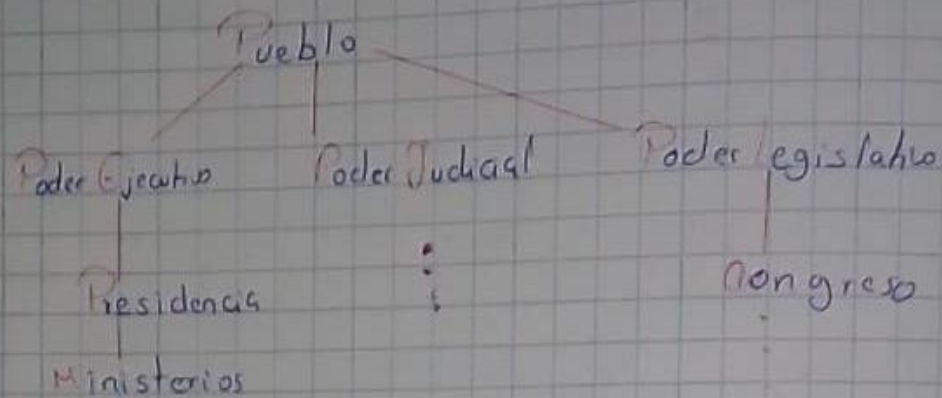 Pueblo
Poder Ejecutivo Poder Judicial Poder Legislativo
Presidencia Congreso
Ministerios